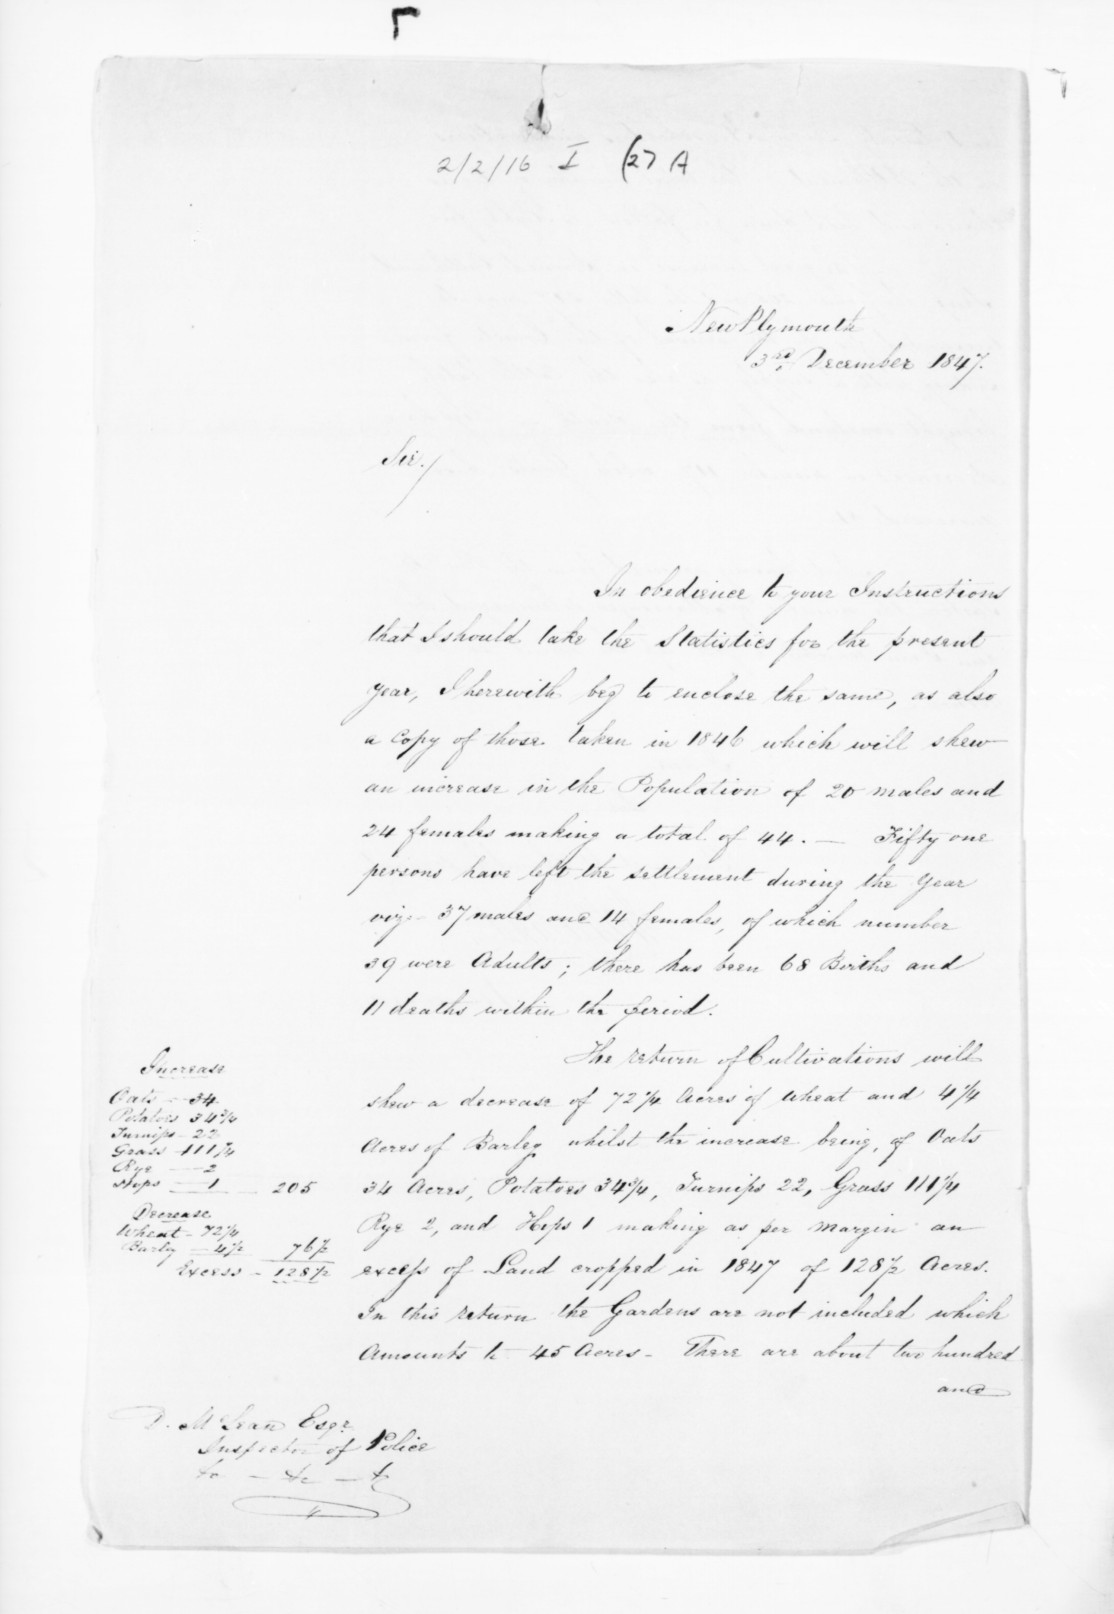 2/2/16 I (27 A
New Plymouth
3rd December 1847.
Sir,
In obedience to your Instructions
that I should take the Statistics for the present
year, I herewith beg to enclose the same, as also
a Copy of those taken in 1846 which will shew
an increase in the Population of 20 males and
24 females making a total of 44. — Fifty one
persons have left the settlement during the Year
viz— 37 males and 14 females, of which number
39 were Adults; there has been 68 Births and
11 deaths within the period.
The return of Cultivations will
shew a decrease of 72 1/4 Acres of Wheat and 4 1/4
Acres of Barley whilst the increase being, of Oats
34 Acres, Potatoes 34 3/4, Turnips 22, Grass 111 1/4
Rye 2, and Hops 1 making as per margin an
excess of Land cropped in 1847 of 128 1/2 Acres.
In this return the Gardens are not included which
Amounts to 45 Acres — There are about two hundred
and
Increase
Oats — 34
Potatoes 34 3/4
Turnips — 22
Grass — 111 1/4
Rye — 2
Hops — 1 — 205
Decrease
Wheat — 72 1/4
Barley — 4 1/4 76 1/2
Excess — 128 1/2
D. McLean Esqr.
Inspector of Police
&c — &c — &c